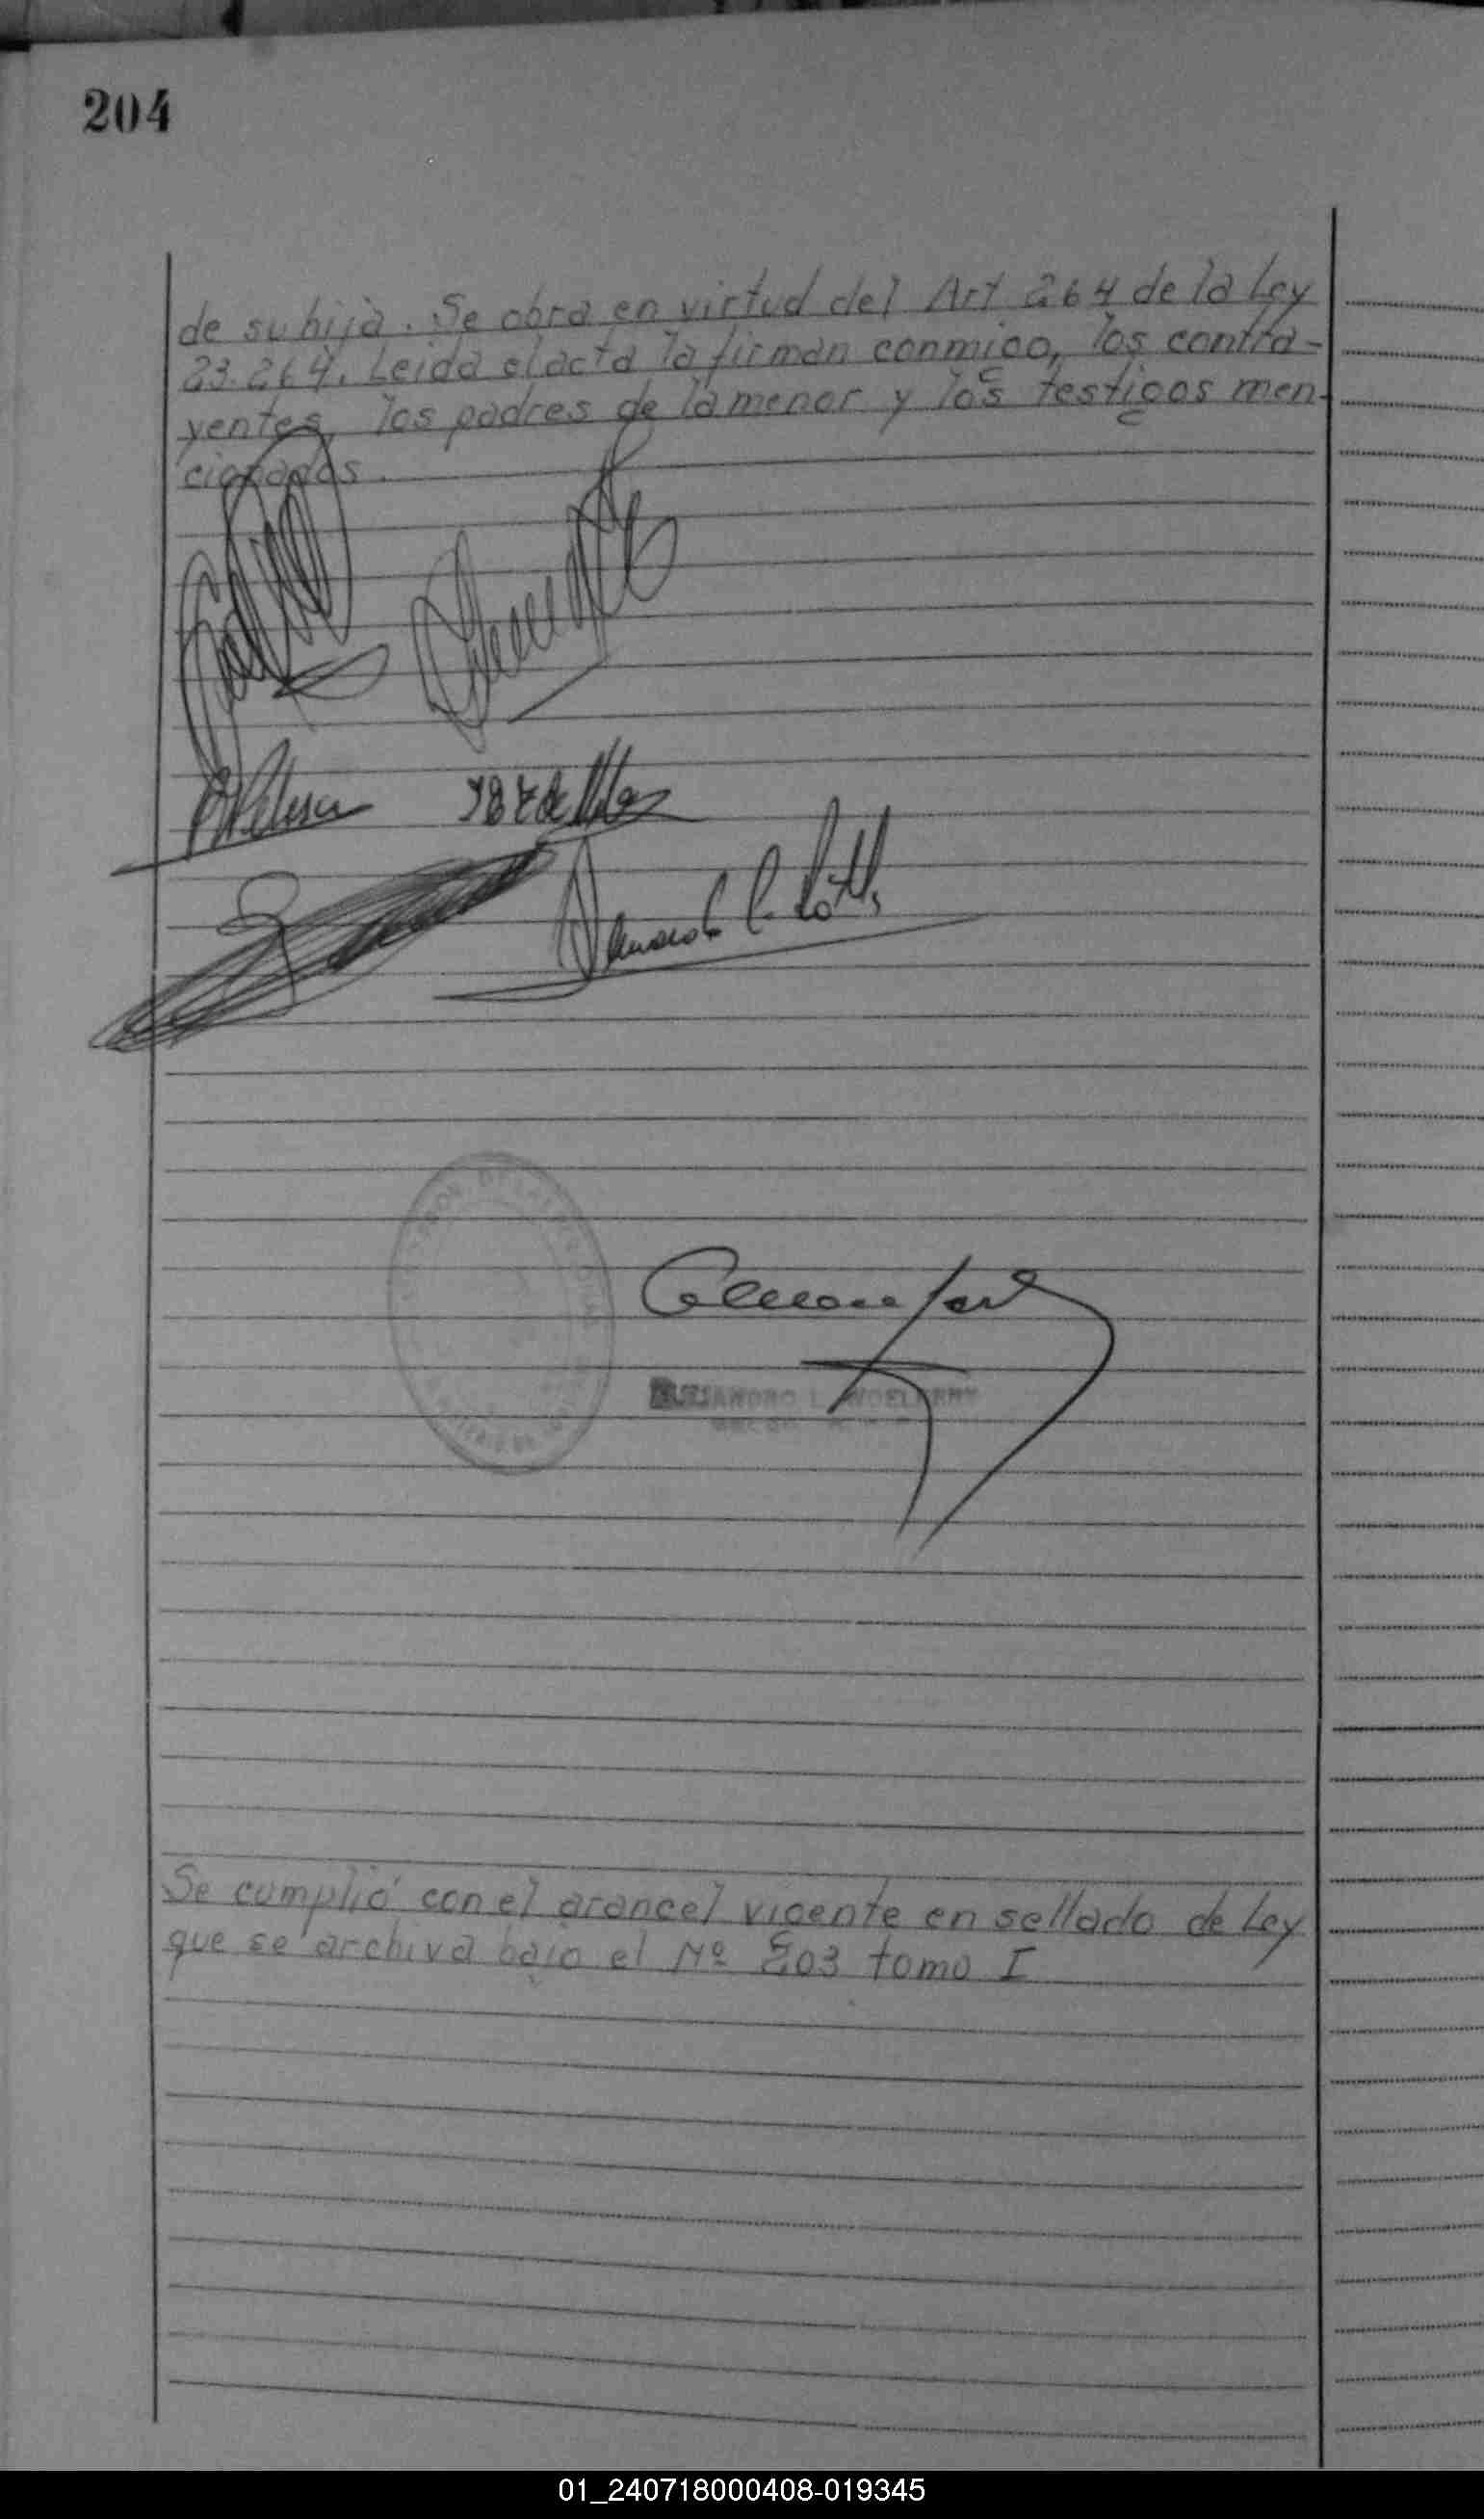 204
de su hija. Se obra en virtud del Art 264 de la Ley
23.264. Leida el acta la firman conmigo, los contra-
yentes, los padres de la menor y los testigos men-
cionados.
ALEJANDRO L.
Se cumplió con el arancel vigente en sellado de Ley
que se archiva bajo el Nº 203 tomo I
01_240718000408-019345